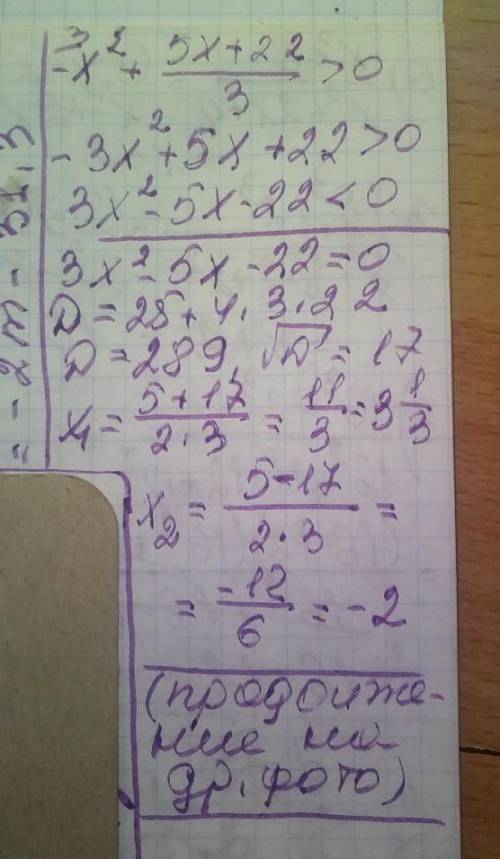 -x² + (5x+22)/3 > 0
- 3x² + 5x + 22 > 0
3x² - 5x - 22 < 0
3x² - 5x - 22 = 0
D = 25 + 4 · 3 · 22
D = 289 √D = 17
x₁ = (5+17)/(2·3) = 11/3 = 3 1/3
x₂ = (5-17)/(2·3) =
= -12/6 = -2
(продолже-
ние на
др. фото)